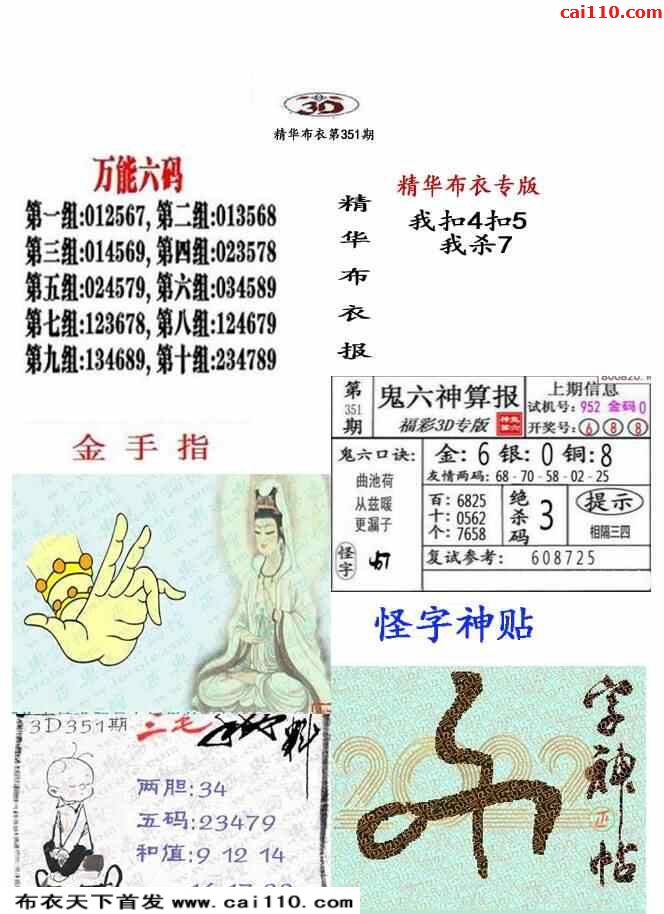 cai110.com
3D
精华布衣第351期
万能六码
第一组:012567, 第二组:013568
第三组:014569, 第四组:023578
第五组:024579, 第六组:034589
第七组:123678, 第八组:124679
第九组:134689, 第十组:234789
精华布衣报
精华布衣专版
我扣4扣5
我杀7
金手指
第351期
鬼六神算报
福彩3D专版
上期信息
试机号: 952 金码 0
开奖号: 6 8 8
鬼六口诀:
曲池荷
从兹暖
更漏子
怪字
金: 6 银: 0 铜: 8
友情两码: 68-70-58-02-25
百: 6825
十: 0562
个: 7658
绝杀码 3
提示
相隔三四
复试参考: 608725
怪字神贴
3D351期
三毛
两胆:34
五码:23479
和值:9 12 14
2022
字神帖
正
布衣天下首发 www.cai110.com